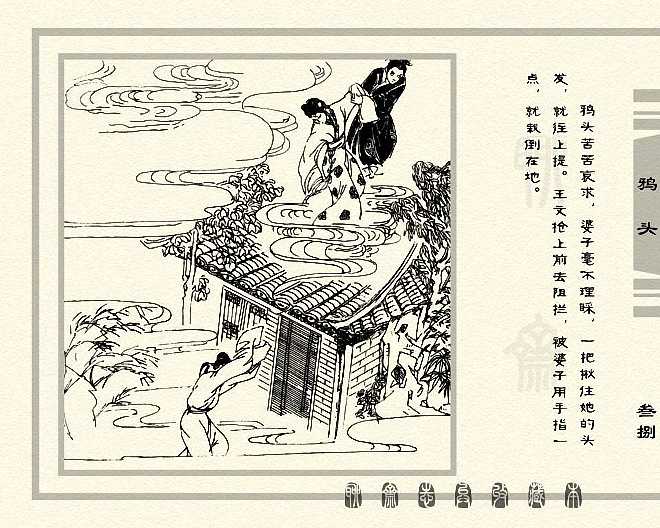 鸦头苦苦哀求，婆子毫不理睬，一把揪住她的头
发，就往上提。王文抢上前去阻拦，被婆子用手指一
点，就栽倒在地。
鸦头
叁捌
聊斋志异收藏本